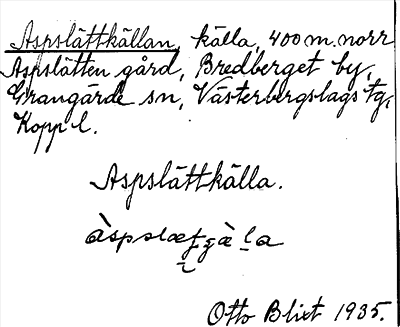 Aspslättkällan, källa, 400 m. norr
Aspslätten gård, Bredberget by,
Grangärde sn, Västerbergslags tg,
Kopp l.
Aspslättkälla.
Otto Blixt 1935.